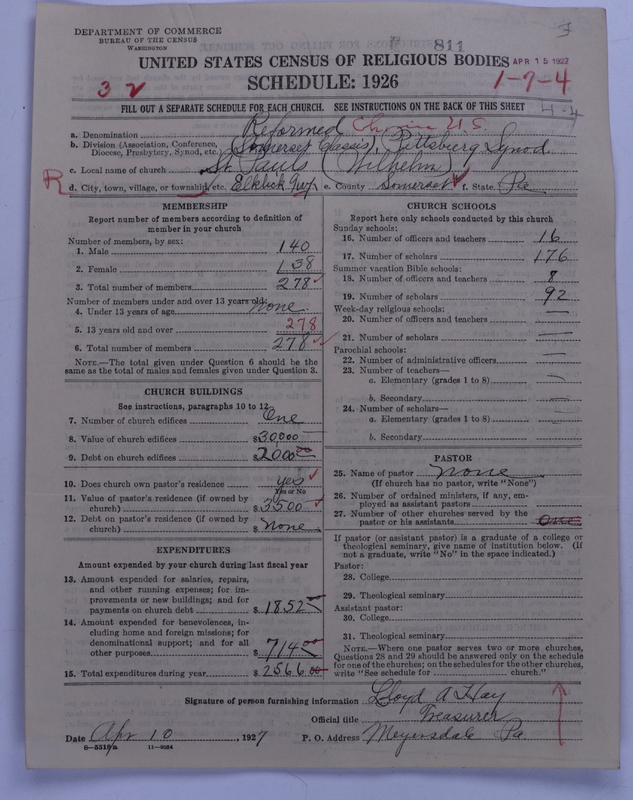 DEPARTMENT OF COMMERCE
BUREAU OF THE CENSUS
WASHINGTON
811
UNITED STATES CENSUS OF RELIGIOUS BODIES APR 15 1927
SCHEDULE: 1926
1-7-4
3
4-4
FILL OUT A SEPARATE SCHEDULE FOR EACH CHURCH. SEE INSTRUCTIONS ON THE BACK OF THIS SHEET
a. Denomination Reformed Ch in U.S.
b. Division (Association, Conference, Diocese, Presbytery, Synod, etc. Somerset Classis, Pittsburg Synod
c. Local name of church St. Pauls (Wilhelm)
R d. City, town, village, or township, etc. Elklick Twp e. County Somerset f. State Pa
MEMBERSHIP
Report number of members according to definition of
member in your church
Number of members, by sex:
1. Male 140
2. Female 138
3. Total number of members 278
Number of members under and over 13 years old:
4. Under 13 years of age none
5. 13 years old and over 278
6. Total number of members 278
NOTE.—The total given under Question 6 should be the
same as the total of males and females given under Question 3.
CHURCH BUILDINGS
See instructions, paragraphs 10 to 12
7. Number of church edifices One
8. Value of church edifices $30,000
9. Debt on church edifices $2000 00
10. Does church own pastor's residence yes
Yes or No
11. Value of pastor's residence (if owned by
church) $3500
12. Debt on pastor's residence (if owned by
church) $none
EXPENDITURES
Amount expended by your church during last fiscal year
13. Amount expended for salaries, repairs,
and other running expenses; for im-
provements or new buildings; and for
payments on church debt $1852
14. Amount expended for benevolences, in-
cluding home and foreign missions; for
denominational support; and for all
other purposes $714 00
15. Total expenditures during year $2566 00
CHURCH SCHOOLS
Report here only schools conducted by this church
Sunday schools:
16. Number of officers and teachers 16
17. Number of scholars 176
Summer vacation Bible schools:
18. Number of officers and teachers 8
19. Number of scholars 92
Week-day religious schools:
20. Number of officers and teachers —
21. Number of scholars —
Parochial schools:
22. Number of administrative officers —
23. Number of teachers—
a. Elementary (grades 1 to 8) —
b. Secondary —
24. Number of scholars—
a. Elementary (grades 1 to 8) —
b. Secondary —
PASTOR
25. Name of pastor none
(If church has no pastor, write "None")
26. Number of ordained ministers, if any, em-
ployed as assistant pastors
27. Number of other churches served by the
pastor or his assistants One
If pastor (or assistant pastor) is a graduate of a college or
theological seminary, give name of institution below. (If
not a graduate, write "No" in the space indicated.)
Pastor:
28. College
29. Theological seminary
Assistant pastor:
30. College
31. Theological seminary
NOTE.—Where one pastor serves two or more churches,
Questions 28 and 29 should be answered only on the schedule
for one of the churches; on the schedules for the other churches,
write "See schedule for church."
Signature of person furnishing information Lloyd A Hay
Official title Treasurer
Date Apr 10, 1927 P. O. Address Meyersdale Pa
8-5518a 11-9024